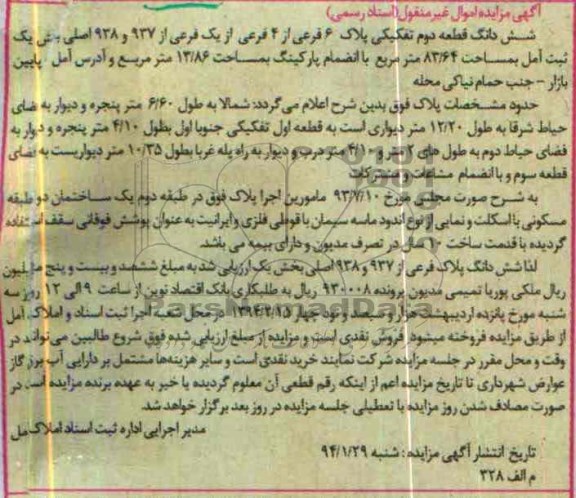 آگهی مزایده اموال غیر منقول (اسناد رسمی)
شش دانگ قطعه دوم تفکیکی پلاک ۶ فرعی از ۴ فرعی از یک فرعی از ۹۳۷ و ۹۳۸ اصلی بخش یک
ثبت آمل بمساحت ۸۳/۶۴ متر مربع با انضمام پارکینگ بمساحت ۱۳/۸۶ متر مربع و آدرس آمل پایین
بازار - جنب حمام نیاکی محله
حدود مشخصات پلاک فوق بدین شرح اعلام می‌گردد: شمالا به طول ۶/۶۰ متر پنجره و دیوار به فضای
حیاط شرقا به طول ۱۲/۲۰ متر دیواری است به قطعه اول تفکیکی جنوبا اول بطول ۴/۱۰ متر پنجره و دیوار به
فضای حیاط دوم به طول های ۲ متر و ۴/۱۰ متر درب و دیوار به راه پله غربا بطول ۱۰/۳۵ متر دیواریست به فضای
قطعه سوم و با انضمام مشاعات و مشترکات
به شرح صورت مجلس مورخ ۹۳/۷/۱۰ مامورین اجرا پلاک فوق در طبقه دوم یک ساختمان دو طبقه
مسکونی با اسکلت و نمایی از نوع اندود ماسه سیمان با قوطی فلزی و ایرانیت به عنوان پوشش فوقانی سقف استفاده
گردیده با قدمت ساخت ۱۰ سال در تصرف مدیون و دارای بیمه می باشد.
لذا شش دانگ پلاک فرعی از ۹۳۷ و ۹۳۸ اصلی بخش یک ارزیابی شد به مبلغ ششصد و بیست و پنج میلیون
ریال ملکی پوریا تمیمی مدیون پرونده ۹۳۰۰۰۸ ریال به طلبکاری بانک اقتصاد نوین از ساعت ۹ الی ۱۲ روز سه
شنبه مورخ پانزده اردیبهشت هزار و سیصد و نود چهار ۱۳۹۴/۲/۱۵ در محل شعبه اجرا ثبت اسناد و املاک آمل
از طریق مزایده فروخته میشود. فروش نقدی است و مزایده از مبلغ ارزیابی شده فوق شروع طالبین می‌تواند در
وقت و محل مقرر در جلسه مزایده شرکت نمایند خرید نقدی است و سایر هزینه‌ها مشتمل بر دارایی آب برق گاز
عوارض شهرداری تا تاریخ مزایده اعم از اینکه رقم قطعی آن معلوم گردیده یا خیر به عهده برنده مزایده است در
صورت مصادف شدن روز مزایده با تعطیلی جلسه مزایده در روز بعد برگزار خواهد شد.
مدیر اجرایی اداره ثبت اسناد املاک آمل
تاریخ انتشار آگهی مزایده: شنبه ۹۴/۱/۲۹
م الف ۳۲۸
ParsNamadData